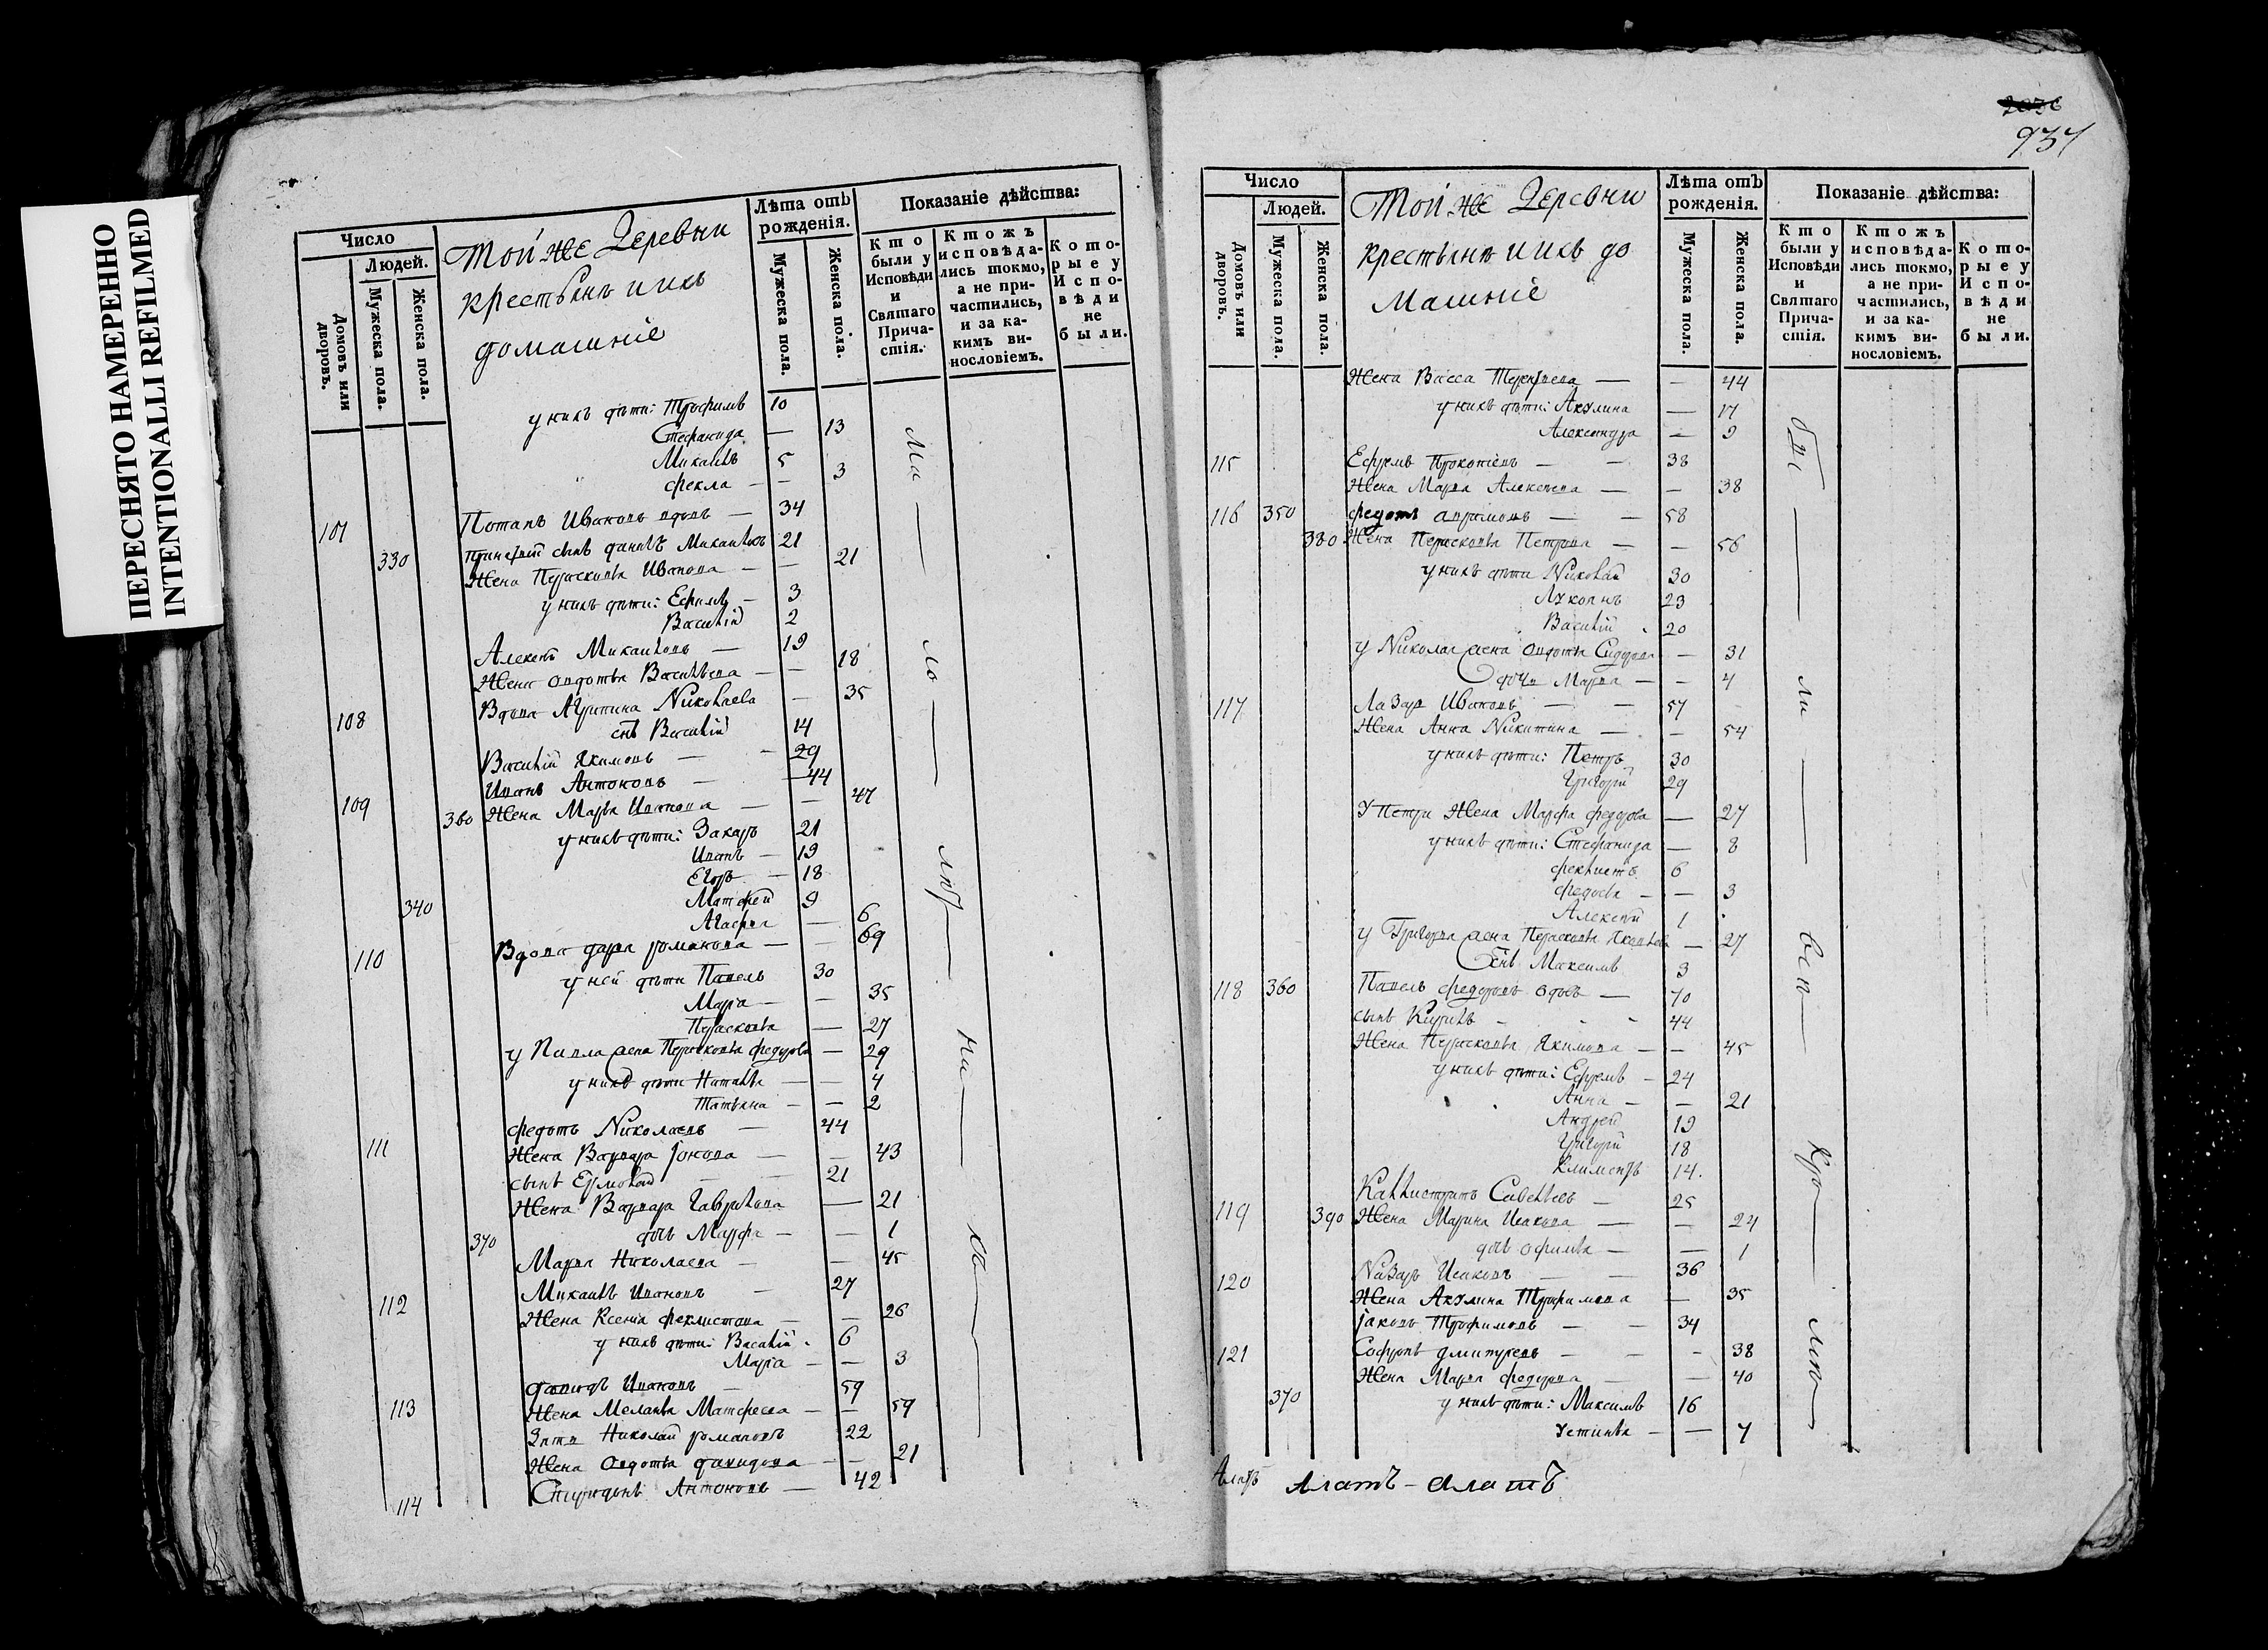 ПЕРЕСНЯТО НАМЕРЕННО
INTENTIONALLI REFILMED
Число
Людей.
Домовъ или дворовъ.
Мужеска пола.
Женска пола.
Той же Деревни
крестьянъ и ихъ
домашніе
Лѣта отъ рожденія.
Мужеска пола.
Женска пола.
Показаніе дѣйства:
Кто были у Исповѣди и Святаго Прича-стія.
Ктожъ исповѣда-лись токмо, а не при-частились, и за ка-кимъ ви-нословіемъ.
Кото-рые у Испо-вѣди не были.
у нихъ дѣти: Трофимъ 10
Стефанида — 13
Михаилъ 5
Фекла — — 3
107 Потапъ Ивановъ вдовъ — 34
330 сынъ Михаиловъ 21
Жена Парасковья Иванова — — 21
у нихъ дѣти: Ефимъ — 3
Василій 2
Алексѣй Михаиловъ — 19
Жена Авдотья Васильева — — 18
108 Вдова Агрипина Николаева — 35
снъ Василій 14
Василій Якимовъ — 29
109 Иванъ Антоновъ — 44
360 Жена Марья Иванова — — 47
у нихъ дѣти: Захаръ 21
Иванъ — 19
Егоръ — 18
340 Матфей 9
Агафья — 6
110 Вдова Дарья Романова — — 69
у ней дѣти Павелъ 30
Маріа — — 35
Парасковья — 27
у Павла жена Парасковья Федорова — 29
у нихъ дѣти Наталья — — 4
Татьяна — — 2
111 Федотъ Николаевъ — 44
Жена Варвара Іонова — — 43
сынъ Ермолай — — 21
Жена Варвара Гаврилова — 21
370 дочь Марфа — — 1
Марья Николаева — — 45
112 Михаилъ Ивановъ — 27
Жена Ксенія Феклистова — — 26
у нихъ дѣти: Василій 6
Маріа — — 3
113 Давидъ Ивановъ — 59
Жена Меланья Матфеева — — 59
Зять Николай Романовъ 22
Жена Авдотья Давидова — — 21
114 Спиридонъ Антоновъ — 42
937
Число
Людей.
Домовъ или дворовъ.
Мужеска пола.
Женска пола.
Той же Деревни
крестьянъ и ихъ до
машніе
Лѣта отъ рожденія.
Мужеска пола.
Женска пола.
Показаніе дѣйства:
Кто были у Исповѣди и Святаго Прича-стія.
Ктожъ исповѣда-лись токмо, а не при-частились, и за ка-кимъ ви-нословіемъ.
Кото-рые у Испо-вѣди не были.
Жена Васса Терентьева — — 44
у нихъ дѣти: Акулина — 17
Александра — 9
115 Ефремъ Прокопіевъ — — 38
Жена Марья Алексѣева — — 38
116 350 Федотъ — — 58
380 Жена Парасковья Петрова — — 56
у нихъ дѣти Николай 30
Лукоянъ 23
Василій 20
у Николая жена Авдотья Сидорова — 31
дочь Марья — — 4
117 Лазарь Ивановъ — — 57
Жена Анна Никитина — — 54
у нихъ дѣти: Петръ 30
Григорій 29
У Петра Жена Марфа Федорова — 27
у нихъ дѣти: Стефанида — 8
6
Федосья — — 3
Алексѣй 1
у Григорья жена Парасковья Яковлева — 27
снъ Максимъ 3
118 360 Павелъ Федоровъ вдовъ — 70
сынъ Кирилъ — 44
Жена Парасковья Якимова — — 45
у нихъ дѣти: Ефремъ — 24
Анна — — 21
Андрей 19
Григорій 18
Климентъ 14.
119 Каллистратъ Савельевъ — 25
390 Жена Марина Исакова — — 24
дочь Офимья — — 1
120 Назаръ Исаковъ — — 36
Жена Акулина Трофимова — 35
Іаковъ Трофимовъ — — 34
121 Софронъ Дмитріевъ — — — 38
Жена Марья Федорова — — 40
370 у нихъ дѣти: Максимъ 16
Устинья — — 7